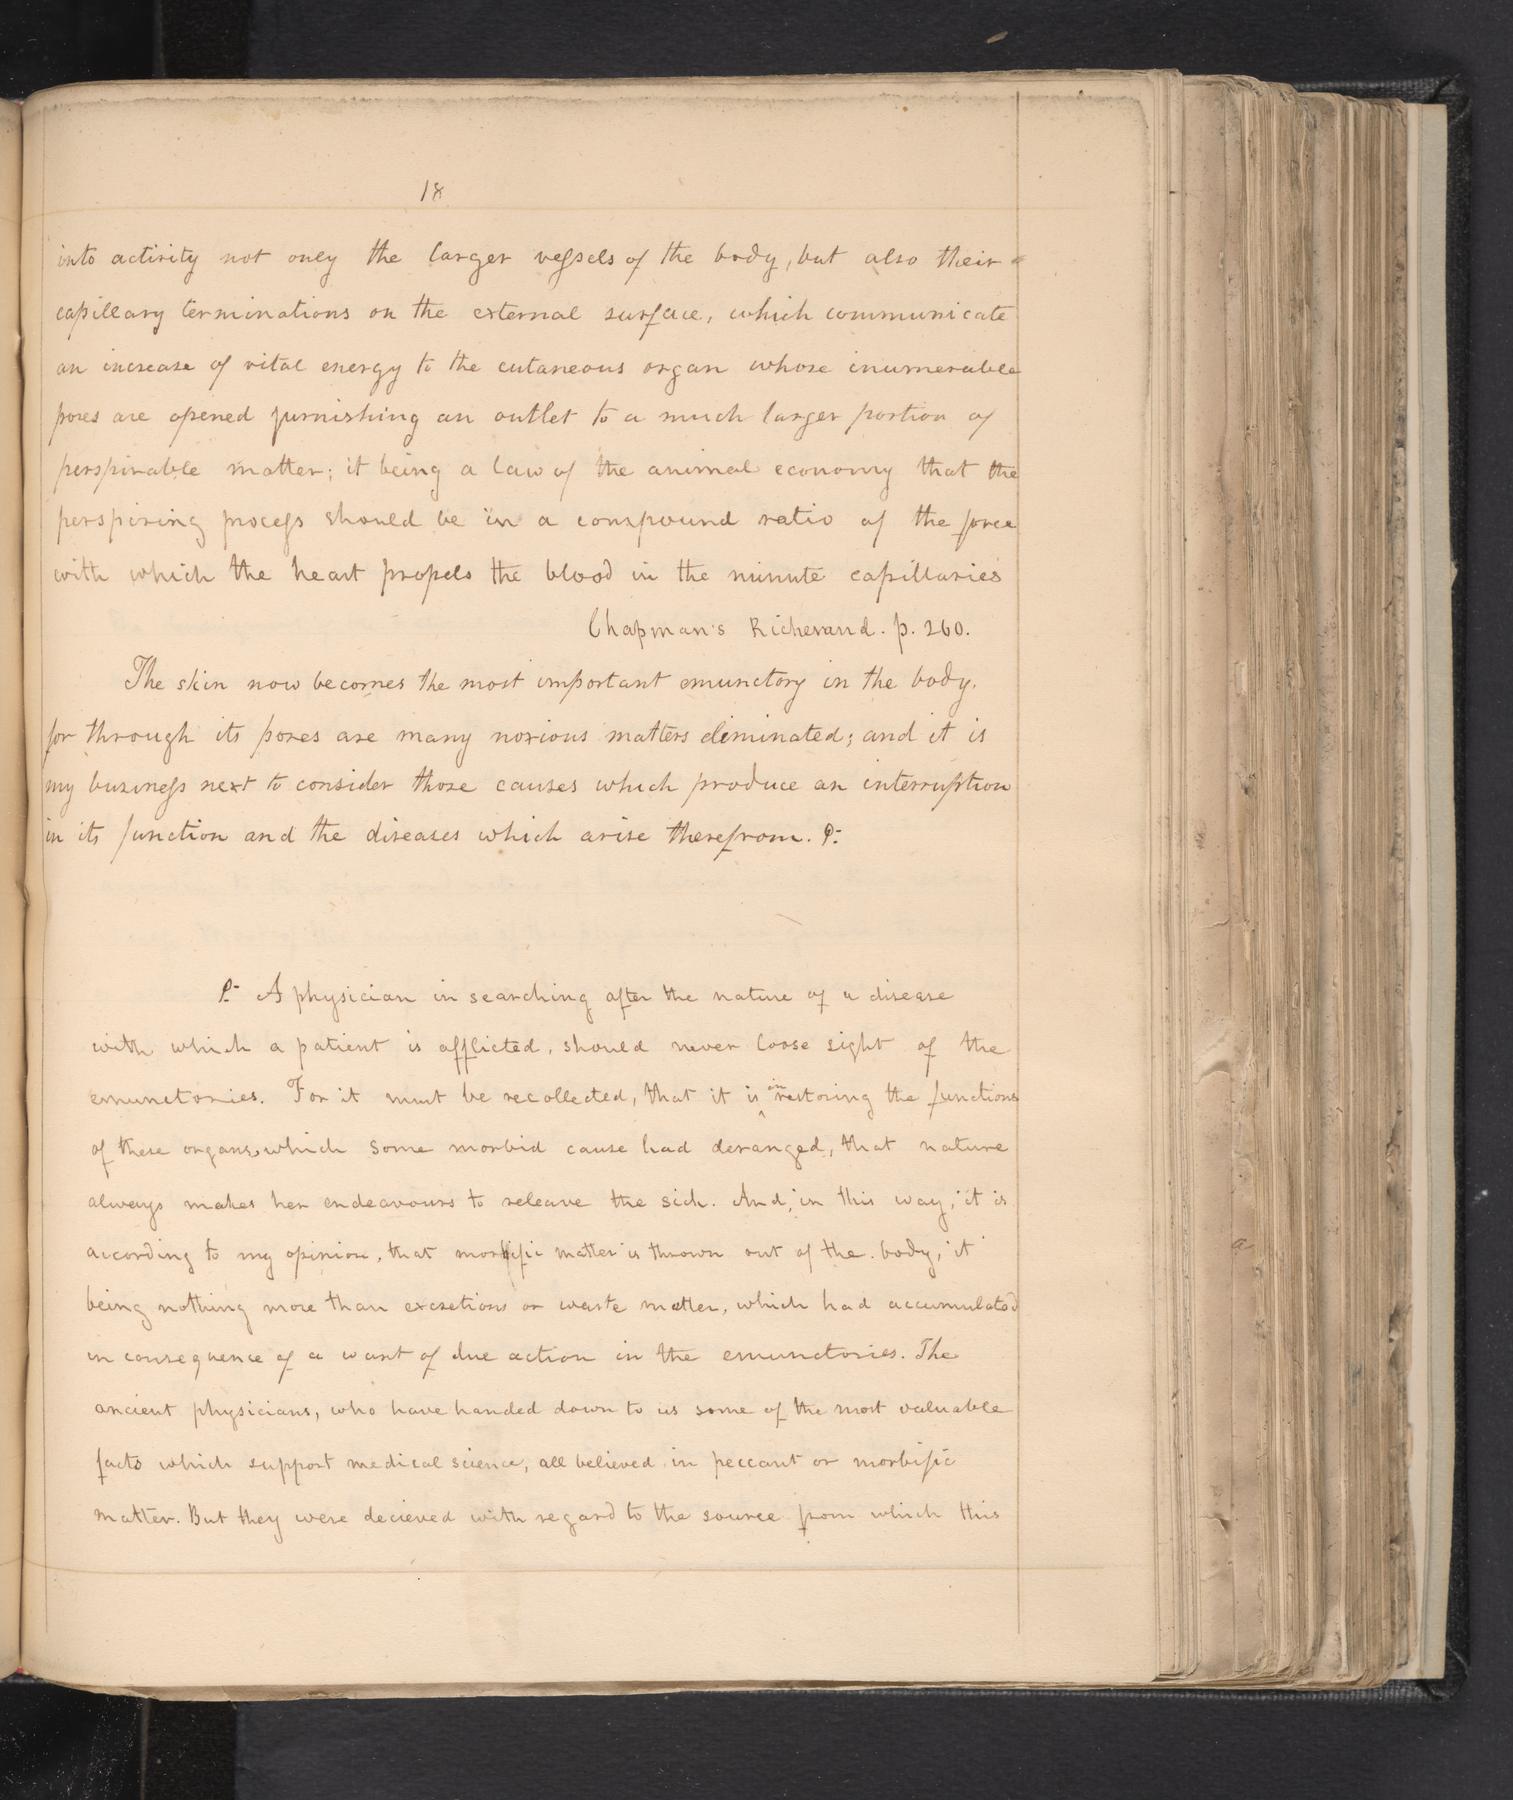 18
into activity not only the larger vessels of the body, but also their
capillary terminations on the external surface, which communicate
an increase of vital energy to the cutaneous organ whose inumerable
pores are opened furnishing an outlet to a much larger portion of
perspirable matter; it being a law of the animal economy that the
perspiring process should be in a compound ratio of the force
with which the heart propels the blood in the minute capillaries
Chapman's Richerand. p. 260.
The skin now becomes the most important emunctory in the body,
for through its pores are many noxious matters eliminated; and it is
my business next to consider those causes which produce an interruption
in its function and the diseases which arise therefrom. P:
P:- A physician in searching after the nature of a disease
with which a patient is afflicted, should never loose sight of the
emunctories. For it must be recollected, that it is in restoring the functions
of these organs, which some morbid cause had deranged, that nature
always makes her endeavours to releave the sick. And, in this way, it is
according to my opinion, that morbific matter is thrown out of the body, it
being nothing more than excretions or waste matter, which had accumulated
in consequence of a want of due action in the emunctories. The
ancient physicians, who have handed down to us some of the most valuable
facts which support medical science, all believed in peccant or morbific
matter. But they were decieved with regard to the source from which this